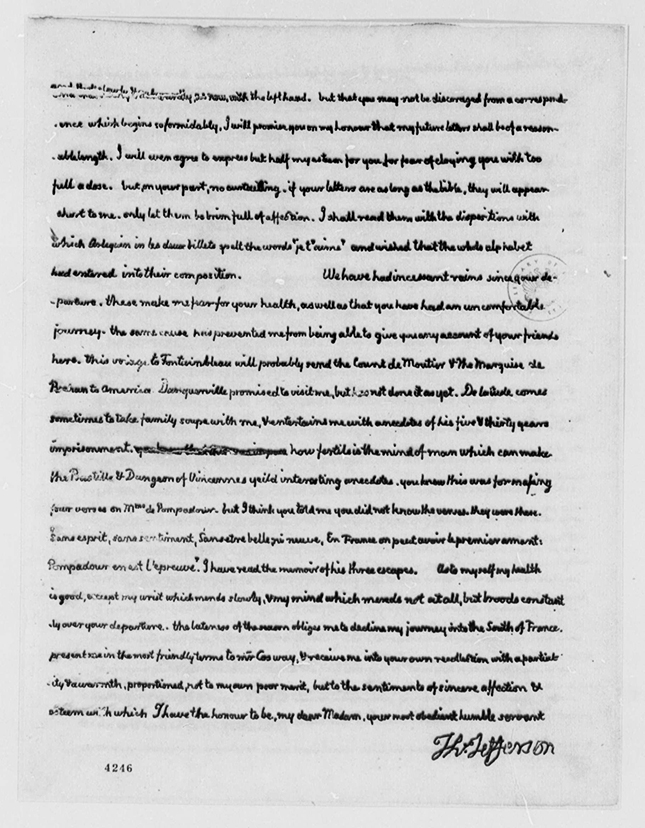 and that slowly & awkwardly as now, with the left hand. but that you may not be discoraged from a correspond-
-ence which begins so formidably, I will promise you on my honour that my future letters shall be of a reason-
-able length. I will even agree to express but half my esteem for you for fear of cloying you with too
full a dose. but, on your part, no curtailing. if your letters are as long as the bible, they will appear
short to me. only let them be brim full of affection. I shall read them with the dispositions with
which Arlequin in les deux billets spelt the words "je t'aime" and wished that the whole alphabet
had entered into their composition. We have had incessant rains since your de-
-parture. these make me fear for your health, as well as that you have had an uncomfortable
journey. the same cause has prevented me from being able to give you any account of your friends
here. this voiage to Fontainbleau will probably send the Count de Moutier & the Marquise de
Brehan to America. Danquerville promised to visit me, but has not done it as yet. De latude comes
sometimes to take family soupe with me, & entertains me with anecdotes of his five & thirty years
imprisonment. how fertile is the mind of man which can make
the Bastille & Dungeon of Vincennes yeild interesting anecdotes. you know this was for making
four verses on Mme de Pompadour. but I think you told me you did not know the verses. they were these.
"Sans esprit, sans sentiment, Sans etre belle, ni neuve, En France on peut avoir le premier amant:
Pompadour en est l'epreuve." I have read the memoir of his three escapes. As to myself my health
is good, except my wrist which mends slowly, & my mind which mends not at all, but broods constant-
-ly over your departure. the lateness of the season obliges me to decline my journey into the South of France.
present me in the most friendly terms to mr Cosway, & receive me into your own recollection with a partial-
-ity & a warmth, proportioned, not to my own poor merit, but to the sentiments of sincere affection &
esteem with which I have the honour to be, my dear Madam, your most obedient humble servant
Th: Jefferson
4246